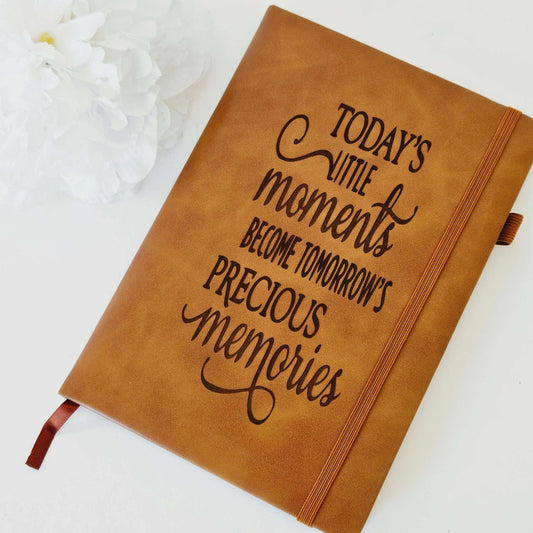 TODAY'S
LITTLE
moments
BECOME TOMORROW'S
PRECIOUS
memories